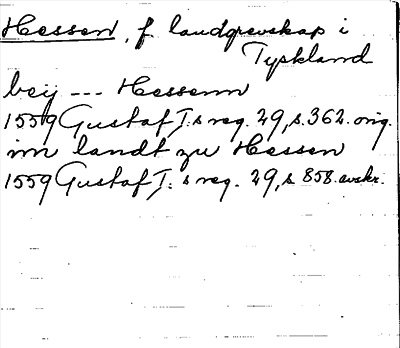 Hessen, f. landgrevskap i
Tyskland
beij --- Hessenn
1559 Gustaf I:s reg. 29, s. 362. orig.
im landt zu Hessen
1559 Gustaf I:s reg. 29, s. 858. avskr.